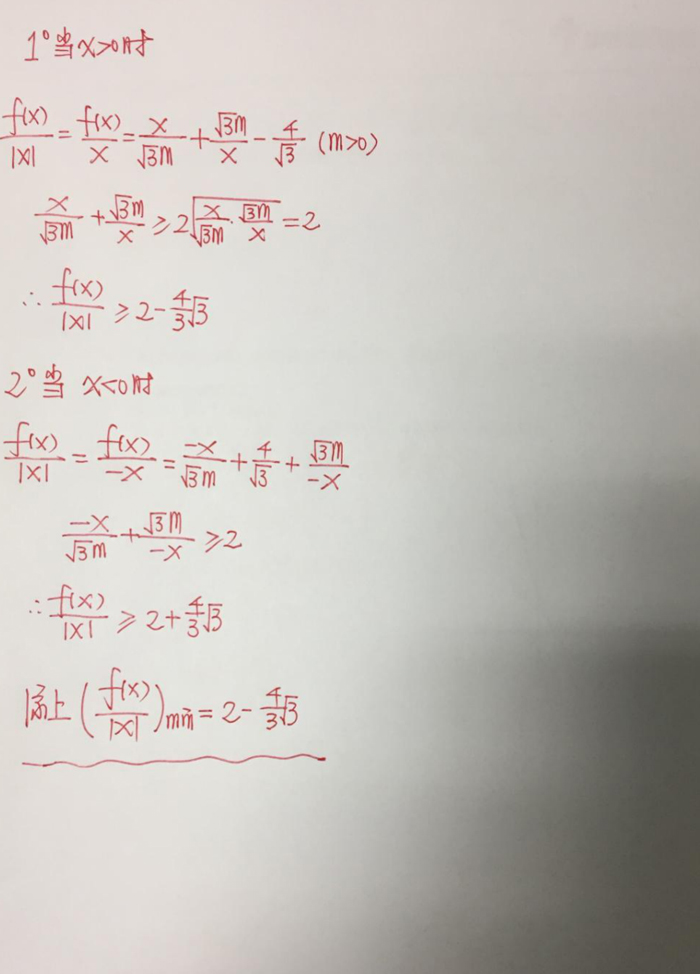 1° 当x>0时
f(x)/|x| = f(x)/x = x/√3m + √3m/x - 4/√3 (m>0)
x/√3m + √3m/x ≥ 2√(x/√3m · √3m/x) = 2
∴ f(x)/|x| ≥ 2 - 4/3√3
2° 当 x<0时
f(x)/|x| = f(x)/-x = -x/√3m + 4/√3 + √3m/-x
-x/√3m + √3m/-x ≥ 2
∴ f(x)/|x| ≥ 2 + 4/3√3
综上 (f(x)/|x|)min = 2 - 4/3√3